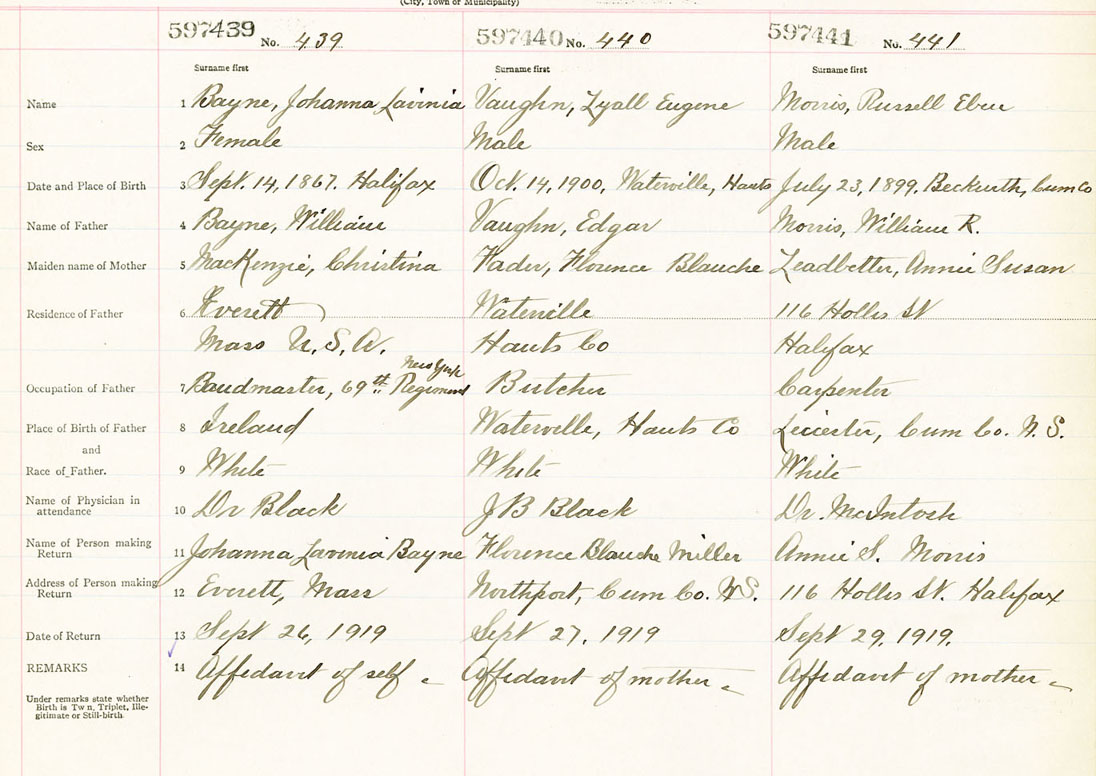 (City, Town or Municipality)
597439 No. 439 597440 No. 440 597441 No. 441
Surname first Surname first Surname first
Name 1 Bayne, Johanna Lavinia Vaughn, Lyall Eugene Morris, Russell Eber
Sex 2 Female Male Male
Date and Place of Birth 3 Sept. 14, 1867. Halifax Oct. 14, 1900, Waterville, Hants July 23, 1899. Beckwith, Cum Co
Name of Father 4 Bayne, William Vaughn, Edgar Morris, William R.
Maiden name of Mother 5 MacKenzie, Christina Fader, Florence Blauche Leadbetter, Annie Susan
Residence of Father 6 Everett Waterville 116 Hollis St
Mass U. S. A. Hants Co Halifax
New York
Occupation of Father 7 Bandmaster, 69th Regiment Butcher Carpenter
Place of Birth of Father 8 Ireland Waterville, Hants Co Leicester, Cum Co. N. S.
and
Race of Father. 9 White White White
Name of Physician in attendance 10 Dr Black J B Black Dr. McIntosh
Name of Person making Return 11 Johanna Lavinia Bayne Florence Blauche Miller Annie S. Morris
Address of Person making Return 12 Everett, Mass Northport, Cum Co. N.S. 116 Hollis St. Halifax
Date of Return 13 Sept 26, 1919 Sept 27, 1919 Sept 29, 1919.
REMARKS 14 Affidavit of self Affidavit of mother Affidavit of mother
Under remarks state whether
Birth is Tw n, Triplet, Ille-
gitimate or Still-birth.